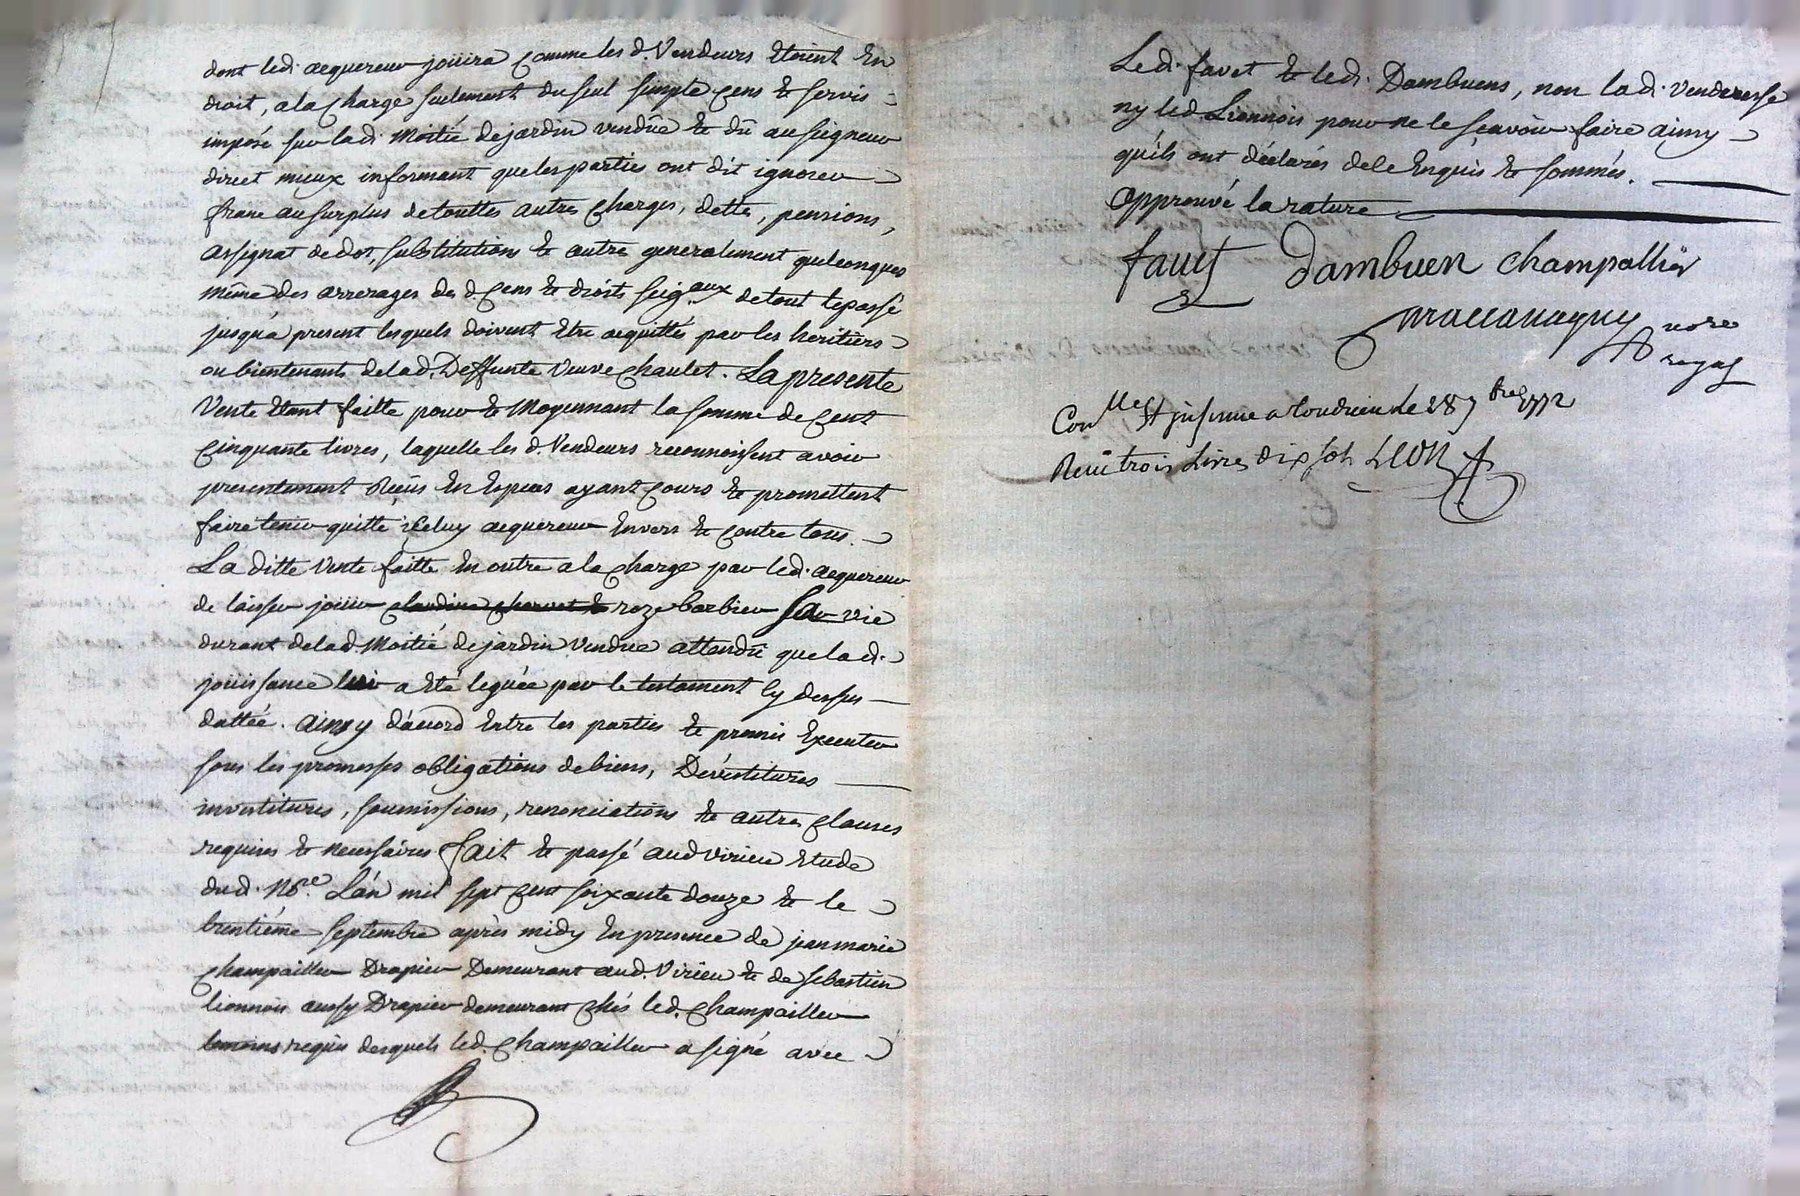 dont led. acquereur joüira comme les d. Vendeurs étoient En
droit, a la charge seulement du seul simple cens & servis
imposé sur lad. Moitié de jardin vendüe & dû au seigneur
direct mieux informant que les parties ont dit ignorer
franc au surplus de touttes autres charges, dettes, pensions,
assignat de dot, substitutions & autre generalement quelconques
même des arrerages des d. cens & droits seig.aux de tout le passé
jusqu'a present lesquels doivent être acquittés par les heritiers
ou bientenants de lad. Deffunte veuve chaulet. La presente
Vente étant faitte pour & Moyennant la somme de cent
cinquante livres, laquelle les d. Vendeurs reconnoissent avoir
presentement Reçüs En Especes ayant cours & promettent
faire tenir quitte iceluy acquereur Envers & contre tous.
La ditte Vente faitte En outre a la charge par led. acquereur
de laisser joüir claudine chervet & roze barbier Sa vie
durant de lad. Moitié de jardin vendue attendû que lad.
joüissance lui a été leguée par le testament cy dessus
dattée. ainsy d'acord Entre les parties & promis Executer
sous les promesses obligations de biens, Dévestitures
investitures, soumissions, renonciations & autres clauses
requises & necessaires fait & passé aud Virieu Etude
dud. No.re L'án mil sept cent soixante douze & le
trentiéme septembre après midy En presence de jean marie
champailler Drapier Demeurant aud. Virieu & de sebastien
lionnois aussy Drapier demeurant chés led. champailler
temoins requis desquels led. champailler a signé avec
Led. favet & led. Dambuens, non lad. venderesse
ny led Lionnois pour ne le sçavoir faire ainsy
qu'ils ont déclarés de ce Enquis & sommés.
approuvé la rature
favet dambuen champallier
nore
royal
Con.lle & insinué a Condrieu le 28 7bre 1772
Receü trois Livres dix sols